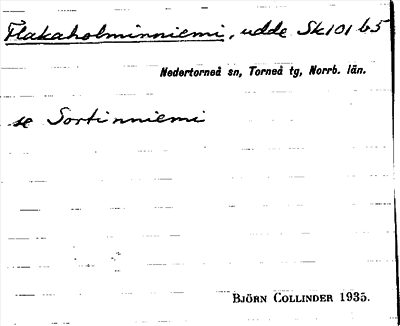 Flakaholminniemi, udde Sk101 b5
Nedertorneå sn, Torneå tg, Norrb. län.
se Sortinniemi
BJÖRN COLLINDER 1935.